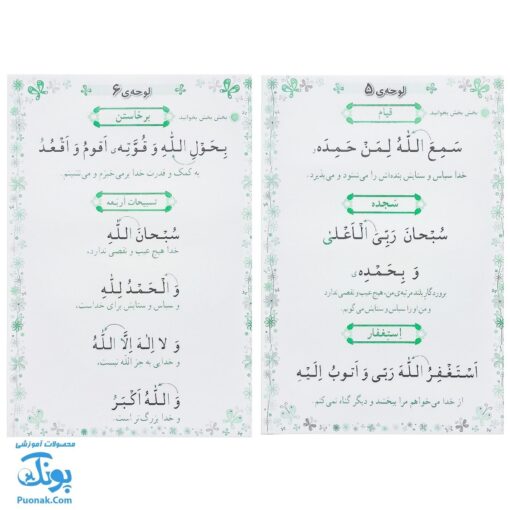 لوحه‌ی ۵
بخش بخش بخوانید.
قیام
سَمِعَ اللّٰهُ لِمَنْ حَمِدَه
خدا سپاس و ستایش بنده‌اش را می‌شنود و می‌پذیرد.
سَجده
سُبْحانَ رَبِّیَ الْاَعْلیٰ
وَ بِحَمْدِه
پروردگار بلندمرتبه‌ی من، هیچ عیب و نقصی ندارد
و من او را سپاس و ستایش می‌گویم.
اِستِغفار
اَسْتَغْفِرُ اللّٰهَ رَبّی وَ اَتوبُ اِلَیْهِ
از خدا می‌خواهم مرا ببخشد و دیگر گناه نمی‌کنم.
لوحه‌ی ۶
بخش بخش بخوانید.
برخاستن
بِحَوْلِ اللّٰهِ وَ قُوَّتِه اَقومُ وَ اَقْعُدُ
به کمک و قدرت خدا برمی‌خیزم و می‌نشینم.
تسبیحات اَربَعه
سُبْحانَ اللّٰهِ
خدا هیچ عیب و نقصی ندارد،
وَ الْحَمْدُ لِلّٰهِ
و سپاس و ستایش برای خداست،
وَ لا اِلٰهَ اِلَّا اللّٰهُ
و خدایی به جز اللّه نیست،
وَ اللّٰهُ اَکْبَرُ
و خدا بزرگ‌تر است.
محصولات آموزشی
پونک
Puonak.Com